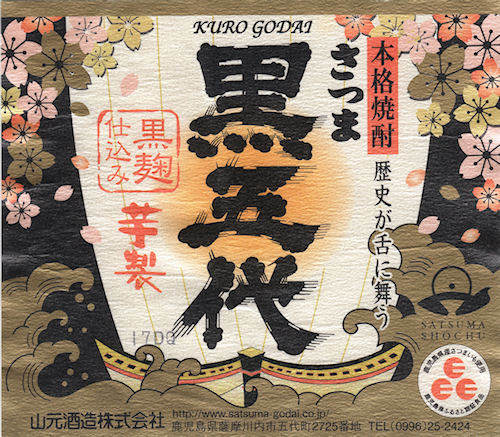 KURO GODAI
本格焼酎
さつま
黒五代
歴史が舌に舞う
黒麹
仕込み
芋製
17D9
SATSUMA
SHOCHU
鹿児島県産さつまいも使用
E
E E
鹿児島県ふるさと認証食品
山元酒造株式会社
http://www.satsuma-godai.co.jp/
鹿児島県薩摩川内市五代町2725番地 TEL(0996)25-2424